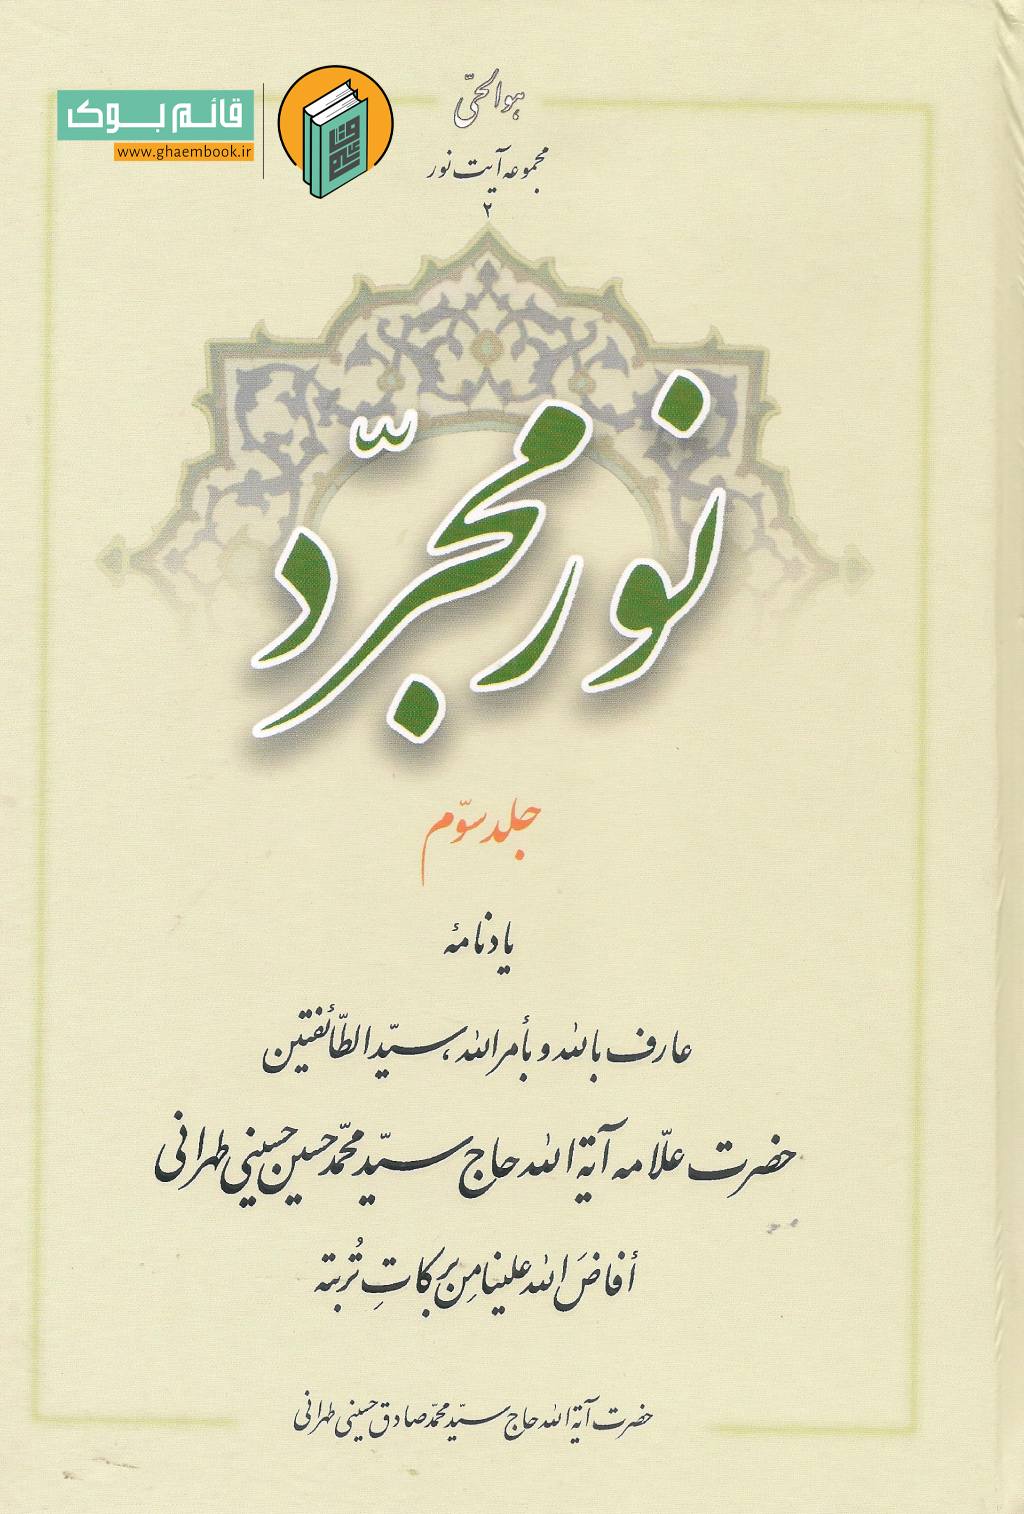 هو الحیّ
قائم بوک
www.ghaembook.ir
مجموعه آیت نور
۲
نور مجرّد
جلد سوّم
یادنامهٔ
عارف بالله و بأمر الله، سیّد الطّائفتین
حضرت علّامه آیة الله حاج سیّد محمّد حسین حسینی طهرانی
أفاضَ الله علینا مِن برکاتِ تُربته
حضرت آیة الله حاج سیّد محمّد صادق حسینی طهرانی